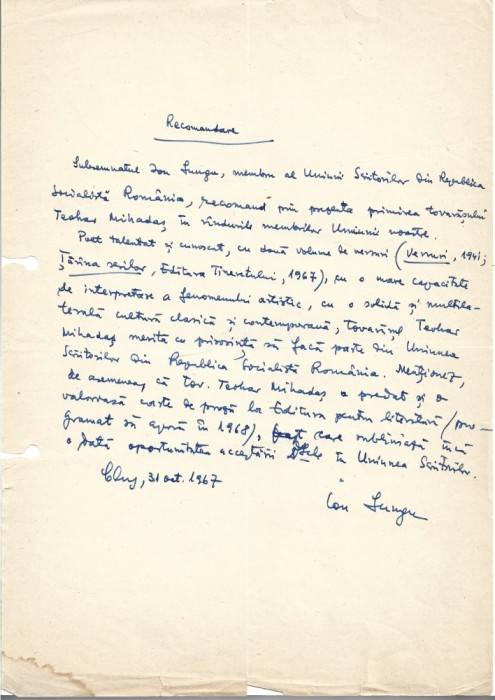 Recomandare
Subsemnatul Ion Lungu, membru al Uniunii Scriitorilor din Republica
Socialistă România, recomand prin prezenta primirea tovarășului
Teohar Mihadaș în rîndurile membrilor Uniunii noastre.
Poet talentat și cunoscut, cu două volume de versuri (Versuri, 1941;
Țărîna serilor, Editura Tineretului, 1967), cu o mare capacitate
de interpretare a fenomenului artistic, cu o solidă și multila-
terală cultură clasică și contemporană, tovarășul Teohar
Mihadaș merită cu prisosință să facă parte din Uniunea
Scriitorilor din Republica Socialistă România. Menționez,
de asemenea, că tov. Teohar Mihadaș a predat și o
valoroasă carte de proză la Editura pentru literatură (pro-
gramat să apară în 1968), care subliniază încă
o dată oportunitatea acceptării D-Sale în Uniunea Scriitorilor.
Cluj, 31 oct. 1967
Ion Lungu